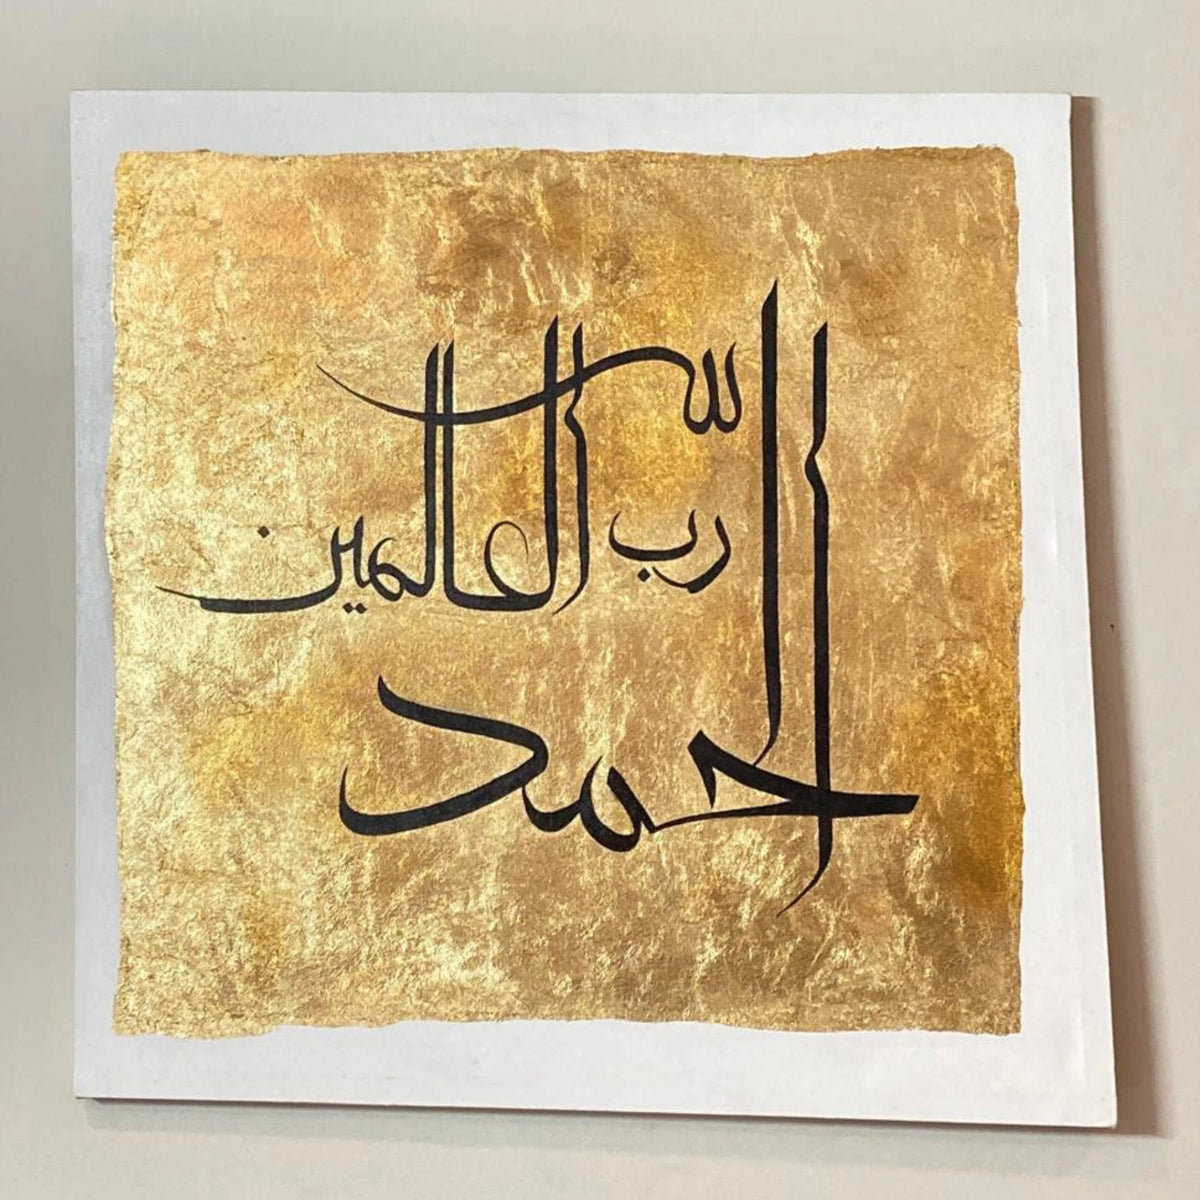 الحمد
لله
رب العالمين